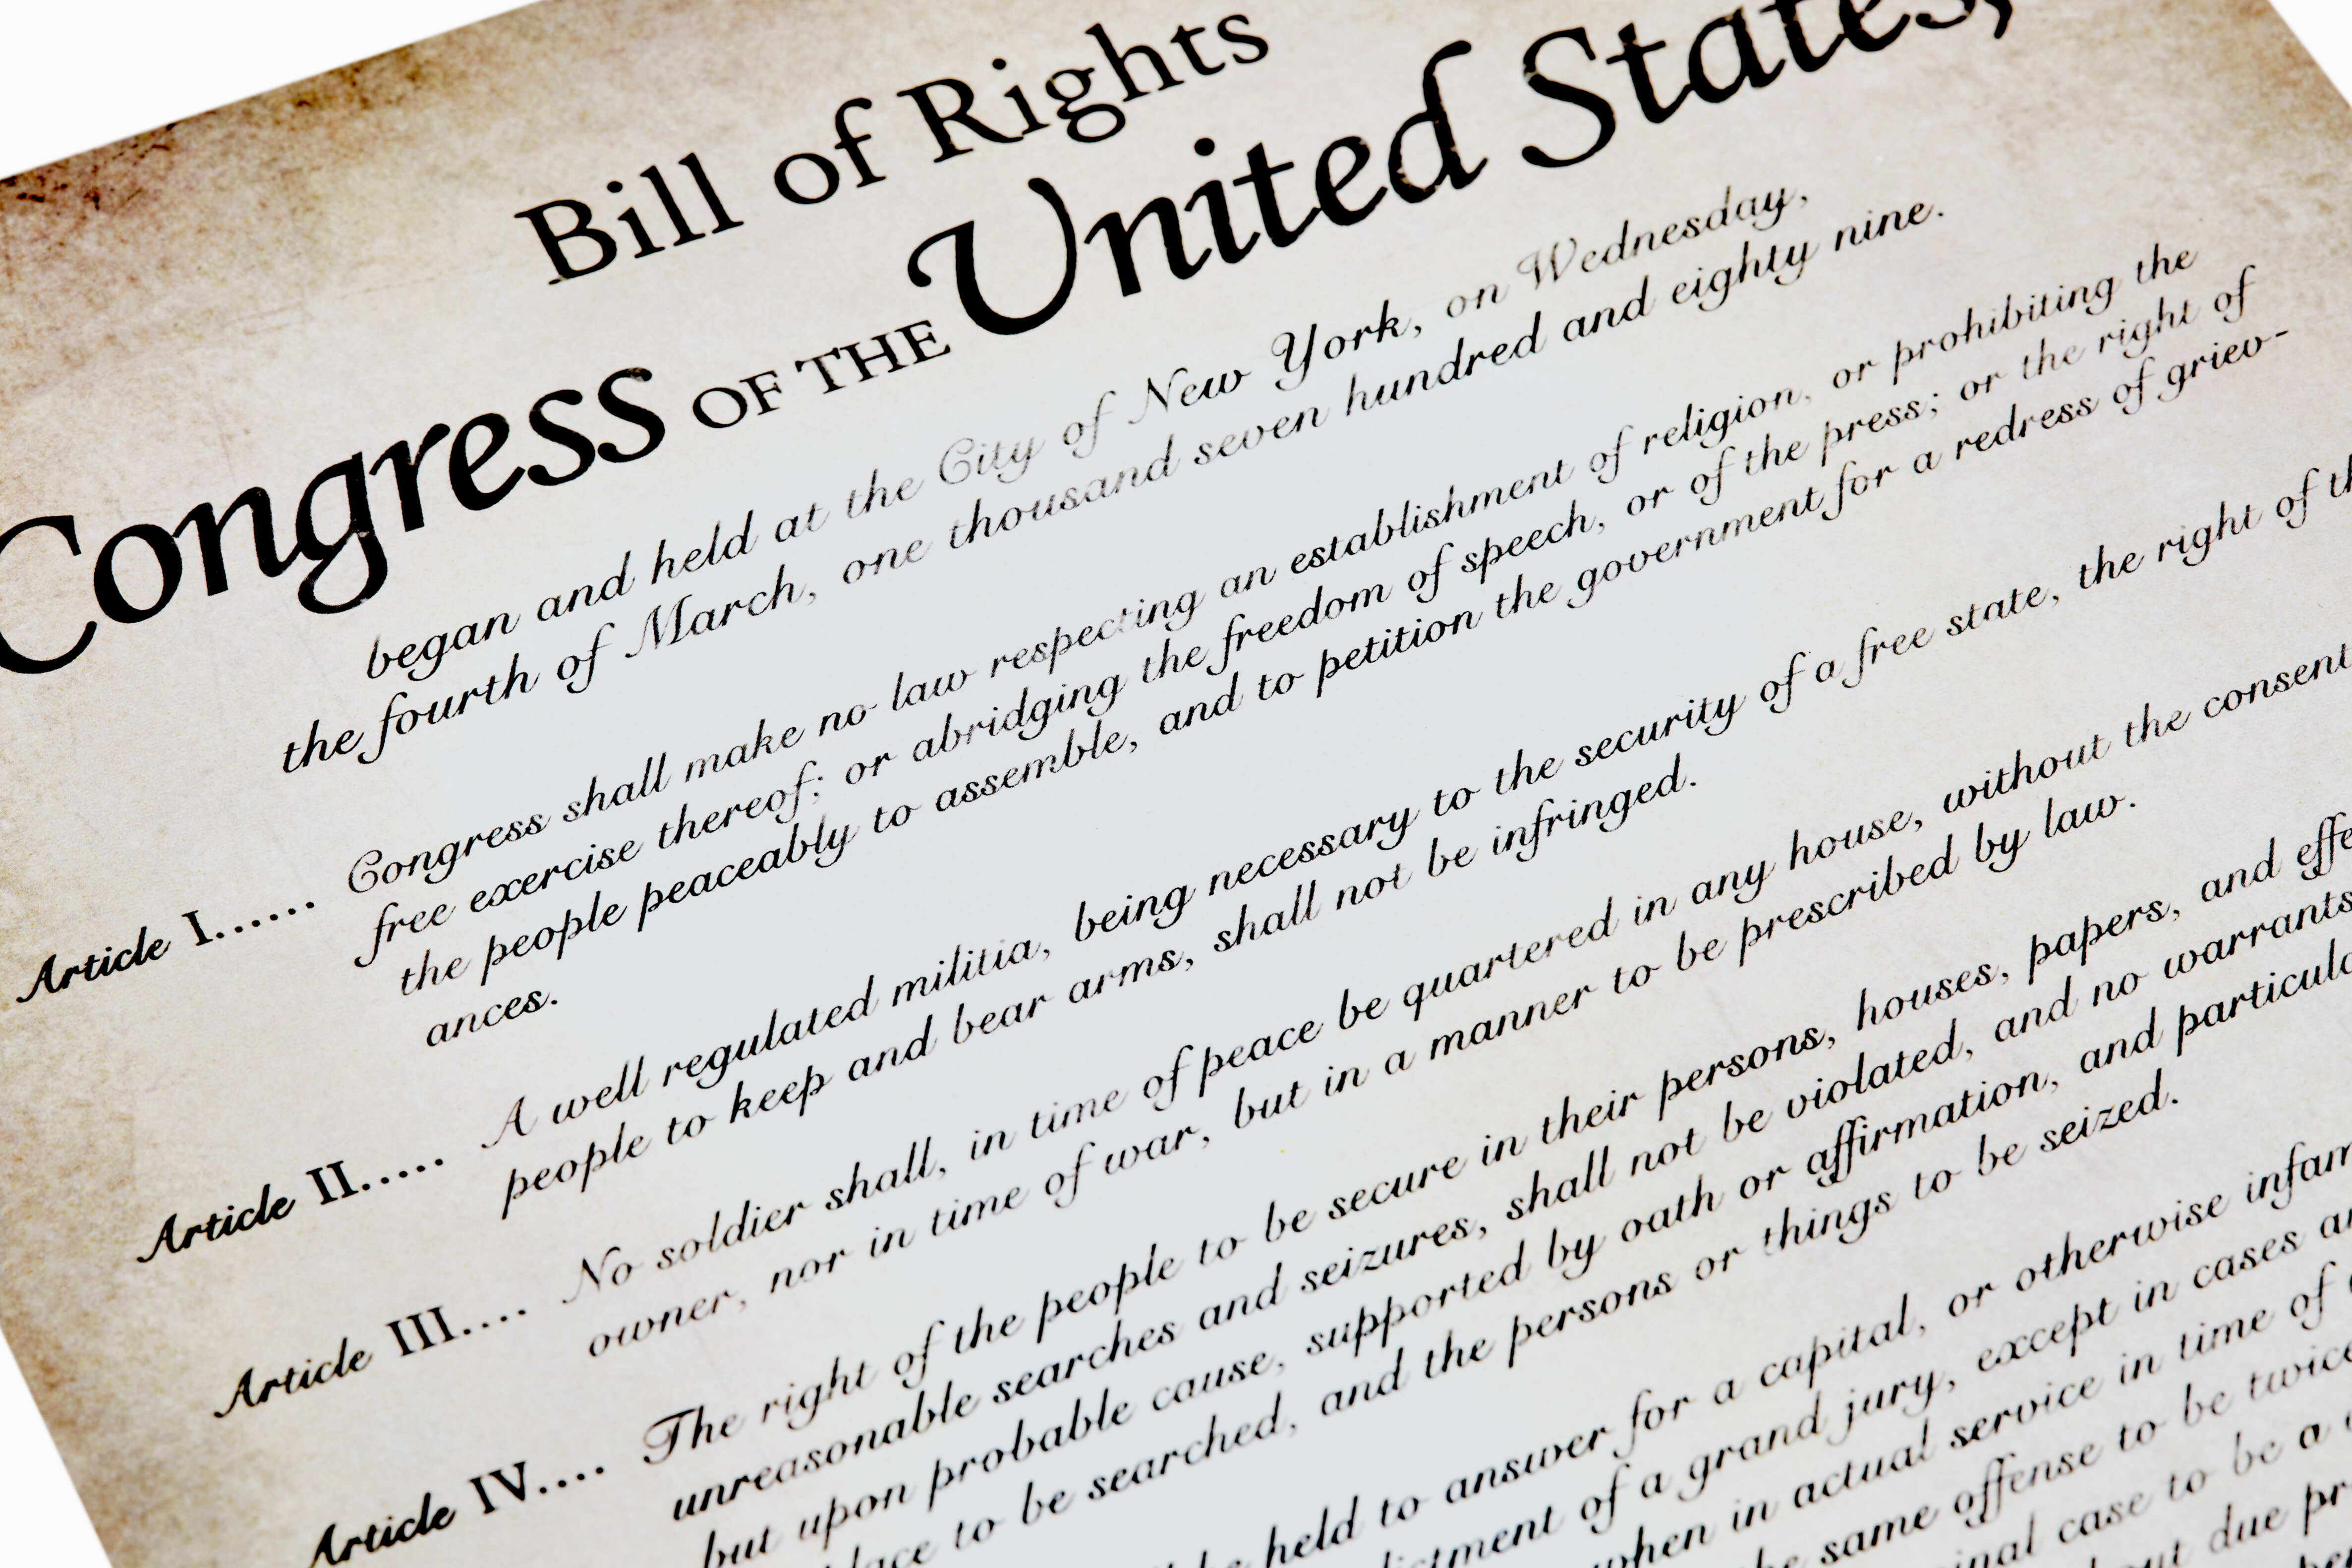 Bill of Rights
Congress OF THE United States,
began and held at the City of New York, on Wednesday,
the fourth of March, one thousand seven hundred and eighty nine.
Article I...... Congress shall make no law respecting an establishment of religion, or prohibiting the
free exercise thereof; or abridging the freedom of speech, or of the press; or the right of
the people peaceably to assemble, and to petition the government for a redress of griev-
ances.
Article II..... A well regulated militia, being necessary to the security of a free state, the right of
people to keep and bear arms, shall not be infringed.
Article III.... No soldier shall, in time of peace be quartered in any house, without the consent
owner, nor in time of war, but in a manner to be prescribed by law.
Article IV.... The right of the people to be secure in their persons, houses, papers, and
unreasonable searches and seizures, shall not be violated, and no warrants
but upon probable cause, supported by oath or affirmation, and
to be searched, and the persons or things to be seized.
held to answer for a capital, or otherwise
of a grand jury, except in cases
when in actual service in time of
same offense to be twice
case to be a
due